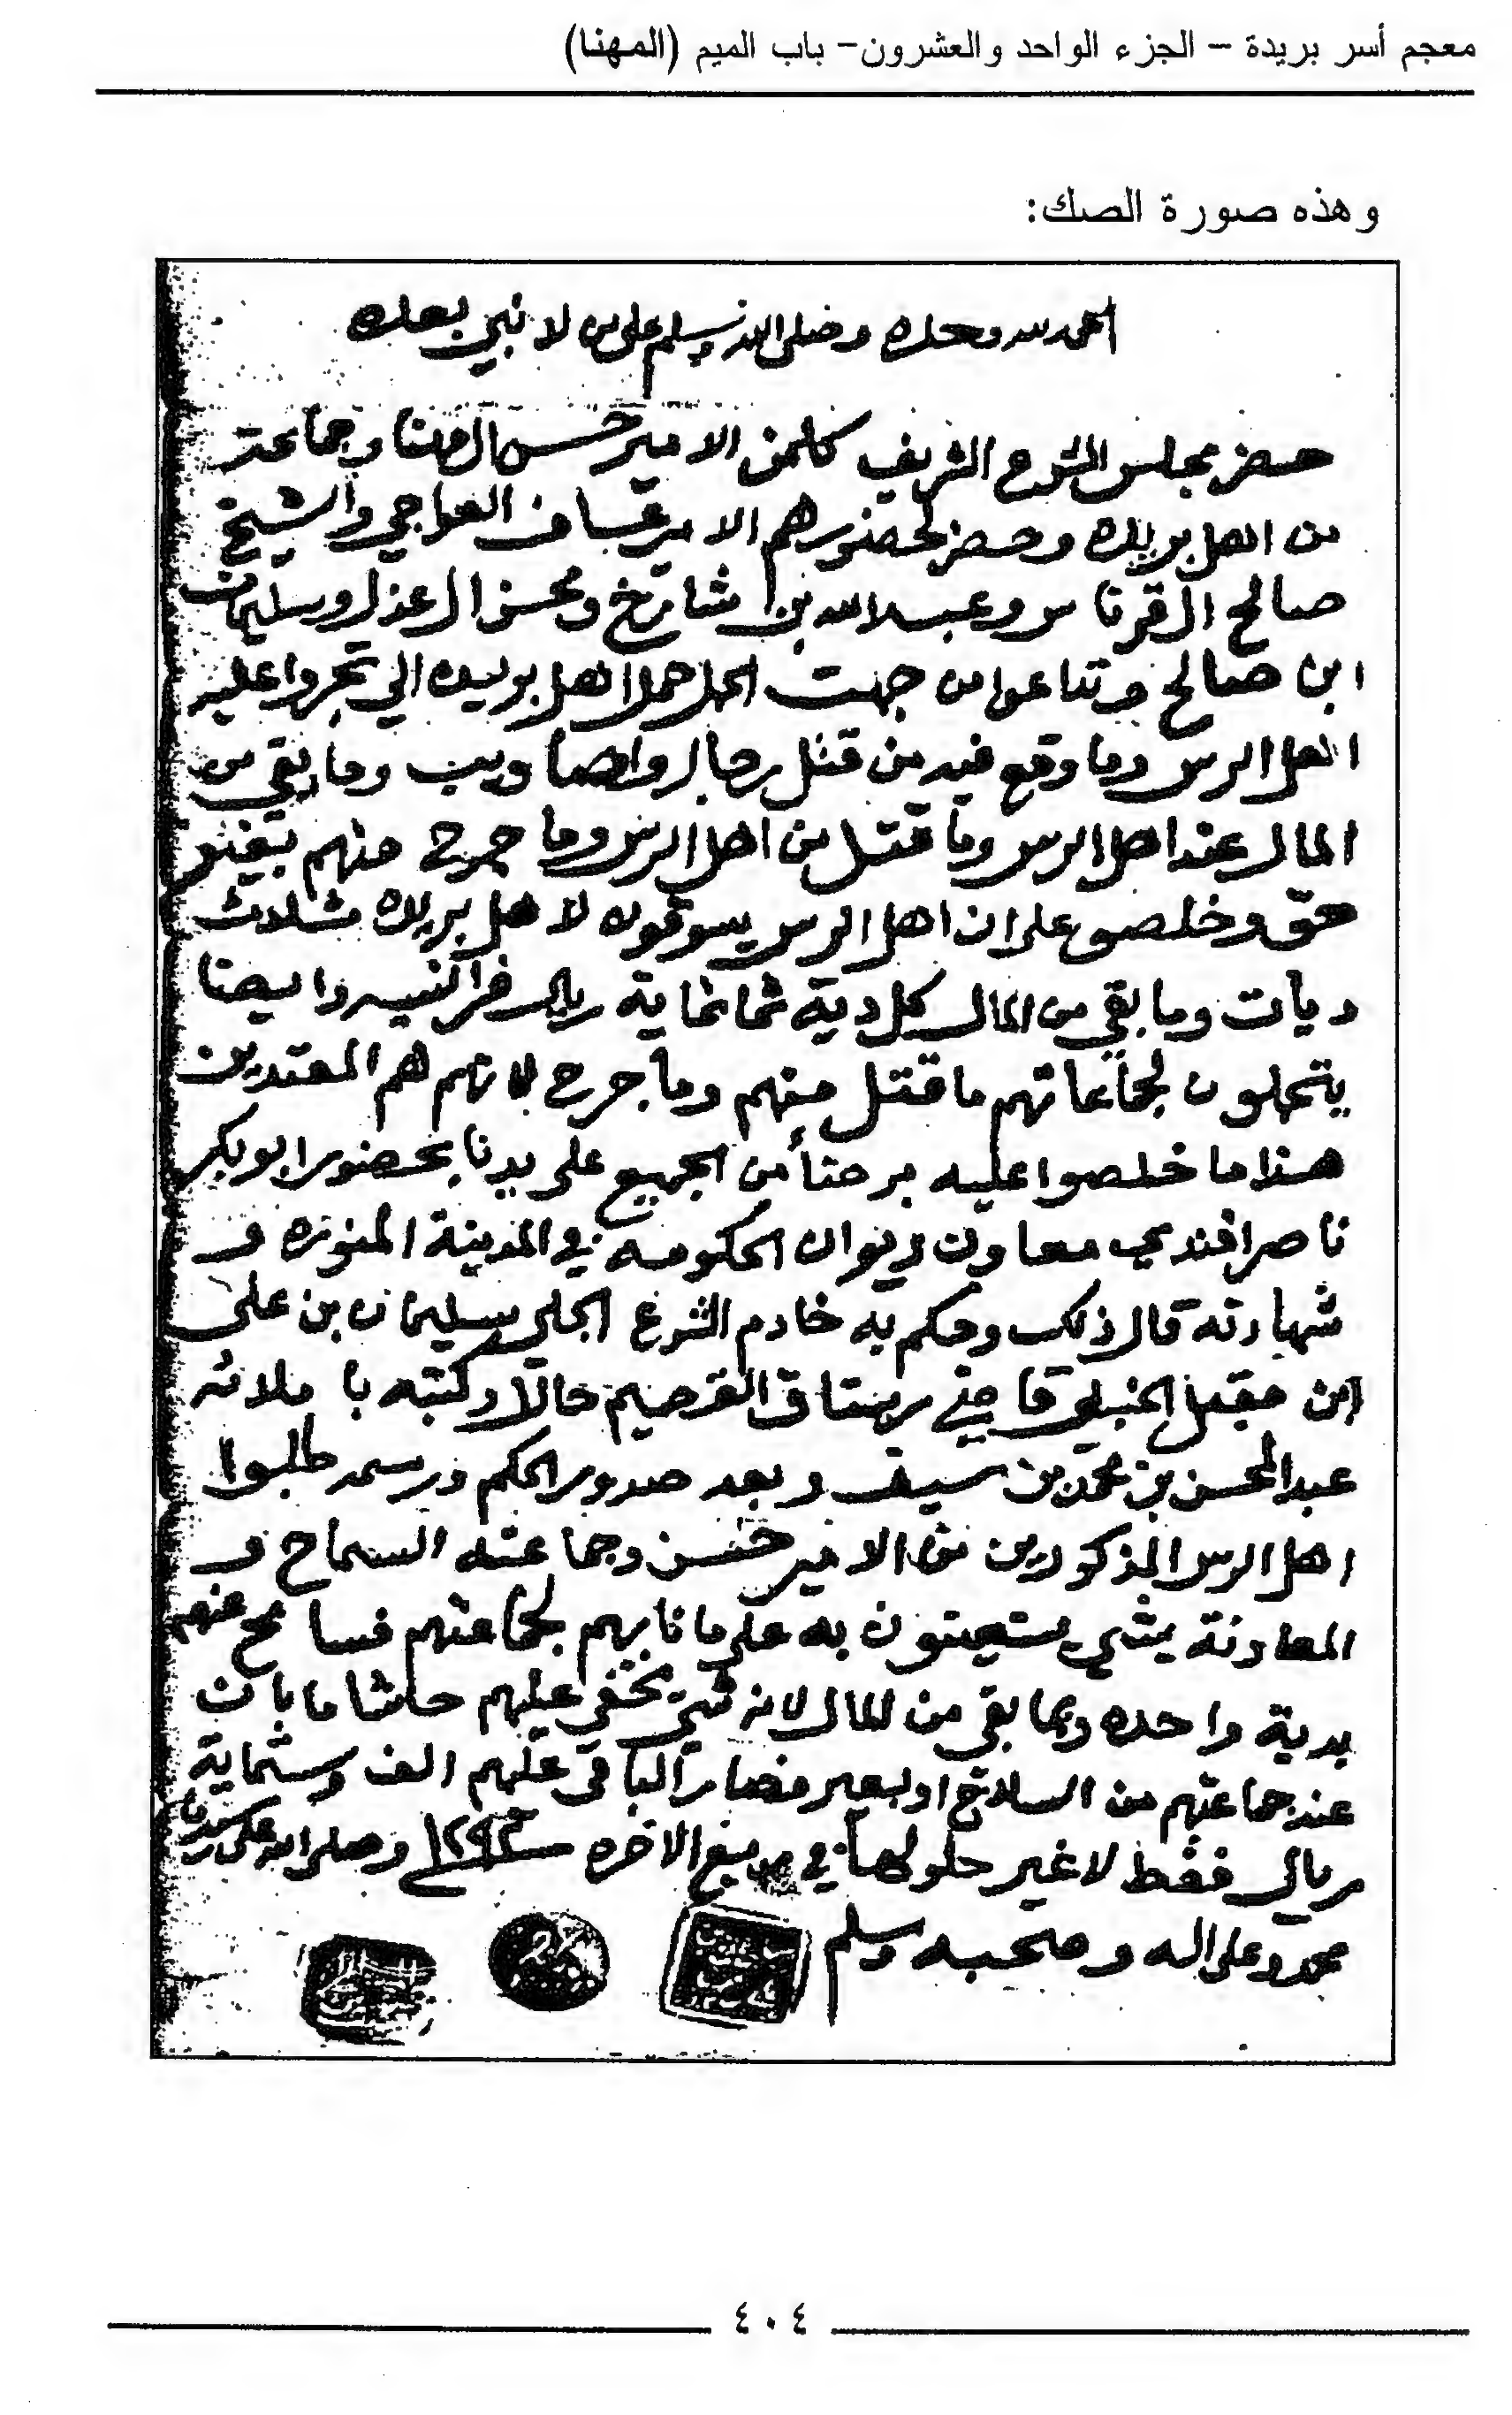 معجم أسر بريدة – الجزء الواحد والعشرون– باب الميم (المهنا)
وهذه صورة الصك:
الحمد لله وحده وصلى الله وسلم على من لا نبي بعده
حضر مجلس الشرع الشريف كلمن الامير حسن المهنا وجماعته
من اهل بريده وحضر لحضورهم الامير عساف العواجي والشيخ
صالح القرناس وعبدالله بن شارخ ومحسن العذل وسليمان
ابن صالح وتداعوا من جهت الحمل حمل اهل بريده الي تجروا عليه
اهل الرس وما وقع فيه من قتل رجال وايضا وما بقي من
المال عند اهل الرس وما قتل من اهل الرس وما جرح منهم بغير
حق وخلصو على ان اهل الرس يسوقون لاهل بريده ثلاث
ديات وما بقي من المال كل دية ثمانماية ريال فرانسه وايضا
يتحملون لجماعاتهم ما قتل منهم وما جرح لانهم هم المعتدين
هذا ما خلصوا عليه برضاً من الجميع على يدنا بحضور ابوبكر
ناصر افندي معاون ديوان الحكومه في المدينة المنوره و
شهادته قال ذلك وحكم به خادم الشرع الجلي سليمان بن علي
ابن مقبل الحنبلي قاضي رستاق القصيم حالا وكتبه باملائه
عبدالمحسن بن محمد بن سيف وبعد صدور الحكم ورسمه طلبوا
اهل الرس المذكورين من الامير حسن وجماعته السماح و
المعاونة بشي يستعينون به على ما نابهم لجماعتهم فسامح عنهم
بدية واحده وبما بقي من المال لانه شي يخفي عليهم حاشا ما بان
عند جماعتهم من السلاح او بعير فصار الباقي عليهم الف وستماية
ريال فقط لا غير حلولها في ربيع الاخره سنة ١٢٩٣ وصلى الله على سيدنا
محمد وعلى اله وصحبه وسلم
٤٠٤